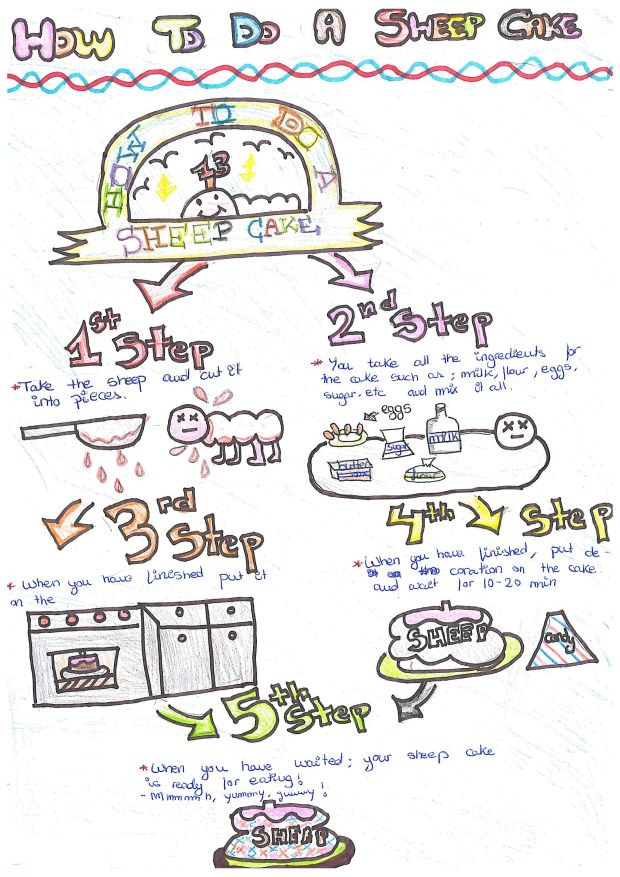 HOW TO DO A SHEEP CAKE
HOW TO DO A
13
SHEEP CAKE
1st Step
* Take the sheep and cut it
into pieces.
2nd Step
* You take all the ingredients for
the cake such as ; milk, flour, eggs,
sugar, etc and mix it all.
eggs
sugar
milk
butter
flour
3rd Step
* When you have finished put it
on the
4th Step
* When you have finished, put de-
coration on the cake
and wait for 10-20 min
SHEEP
candy
5th Step
* When you have waited; your sheep cake
is ready for eating!
- Mmmmmh, yummy, yummy!
SHEEP